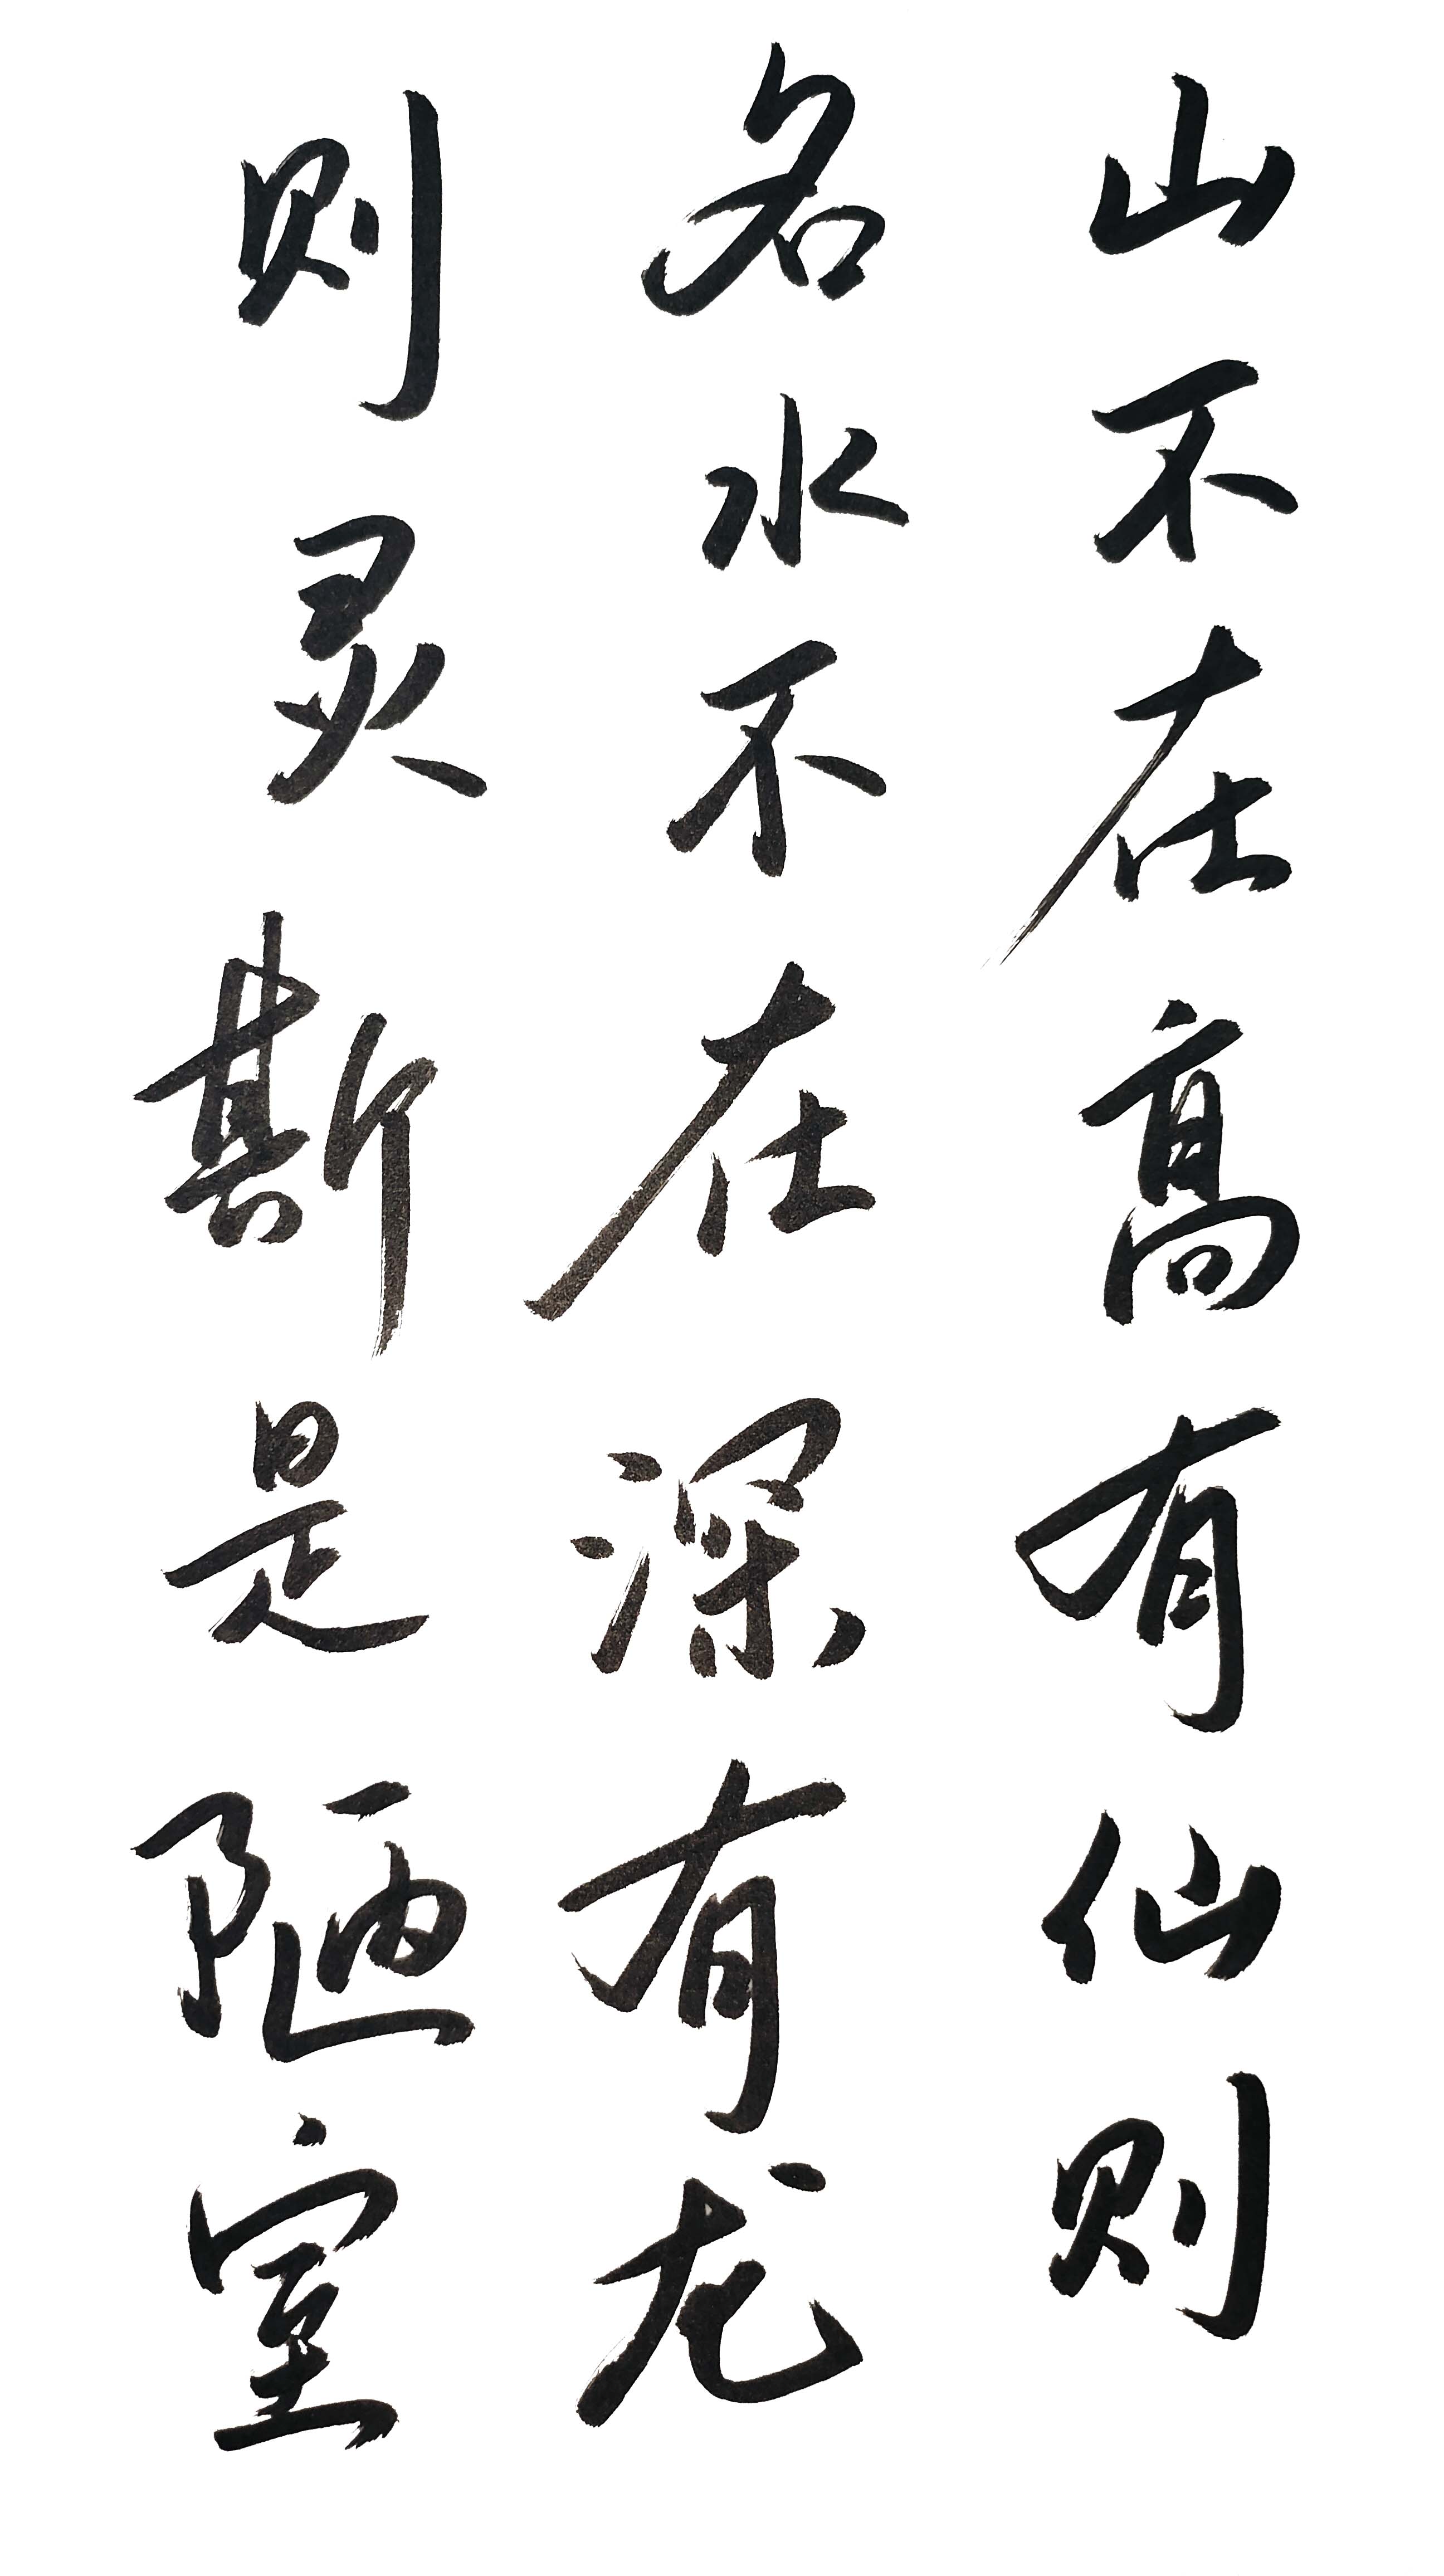 山不在高有仙则
名水不在深有龙
则灵斯是陋室